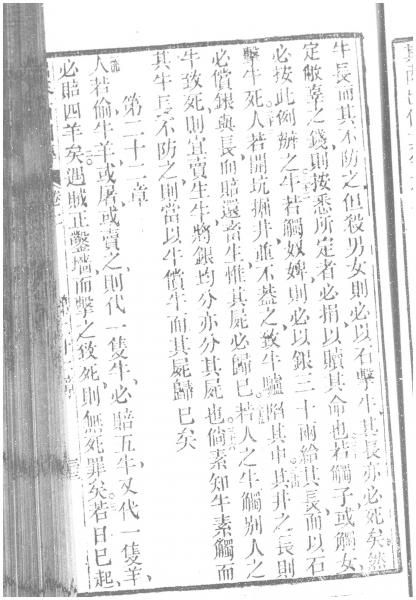 牛長而其不防之但殺男女則必以石擊牛其長亦必死矣然
定敝辜之錢則按悉所定者必捐以贖其命也若觸子或觸女
必按此例辦之牛若觸奴婢則必以銀三十兩給其長而以石
擊牛死人若開坑掘井並不葢之致牛驢陷其中其井之長則
必償銀與長而賠還畜生惟其屍必歸已若人之牛觸別人之
牛致死則宜賣生牛將銀均分亦分其屍也倘素知牛素觸而
其牛長不防之則當以牛償牛而其屍歸已矣
第二十二章
人若偷牛羊或屠或賣之則代一隻牛必賠五牛又代一隻羊
必賠四羊矣遇賊正鑿墻而擊之致死則無死罪矣若日已起